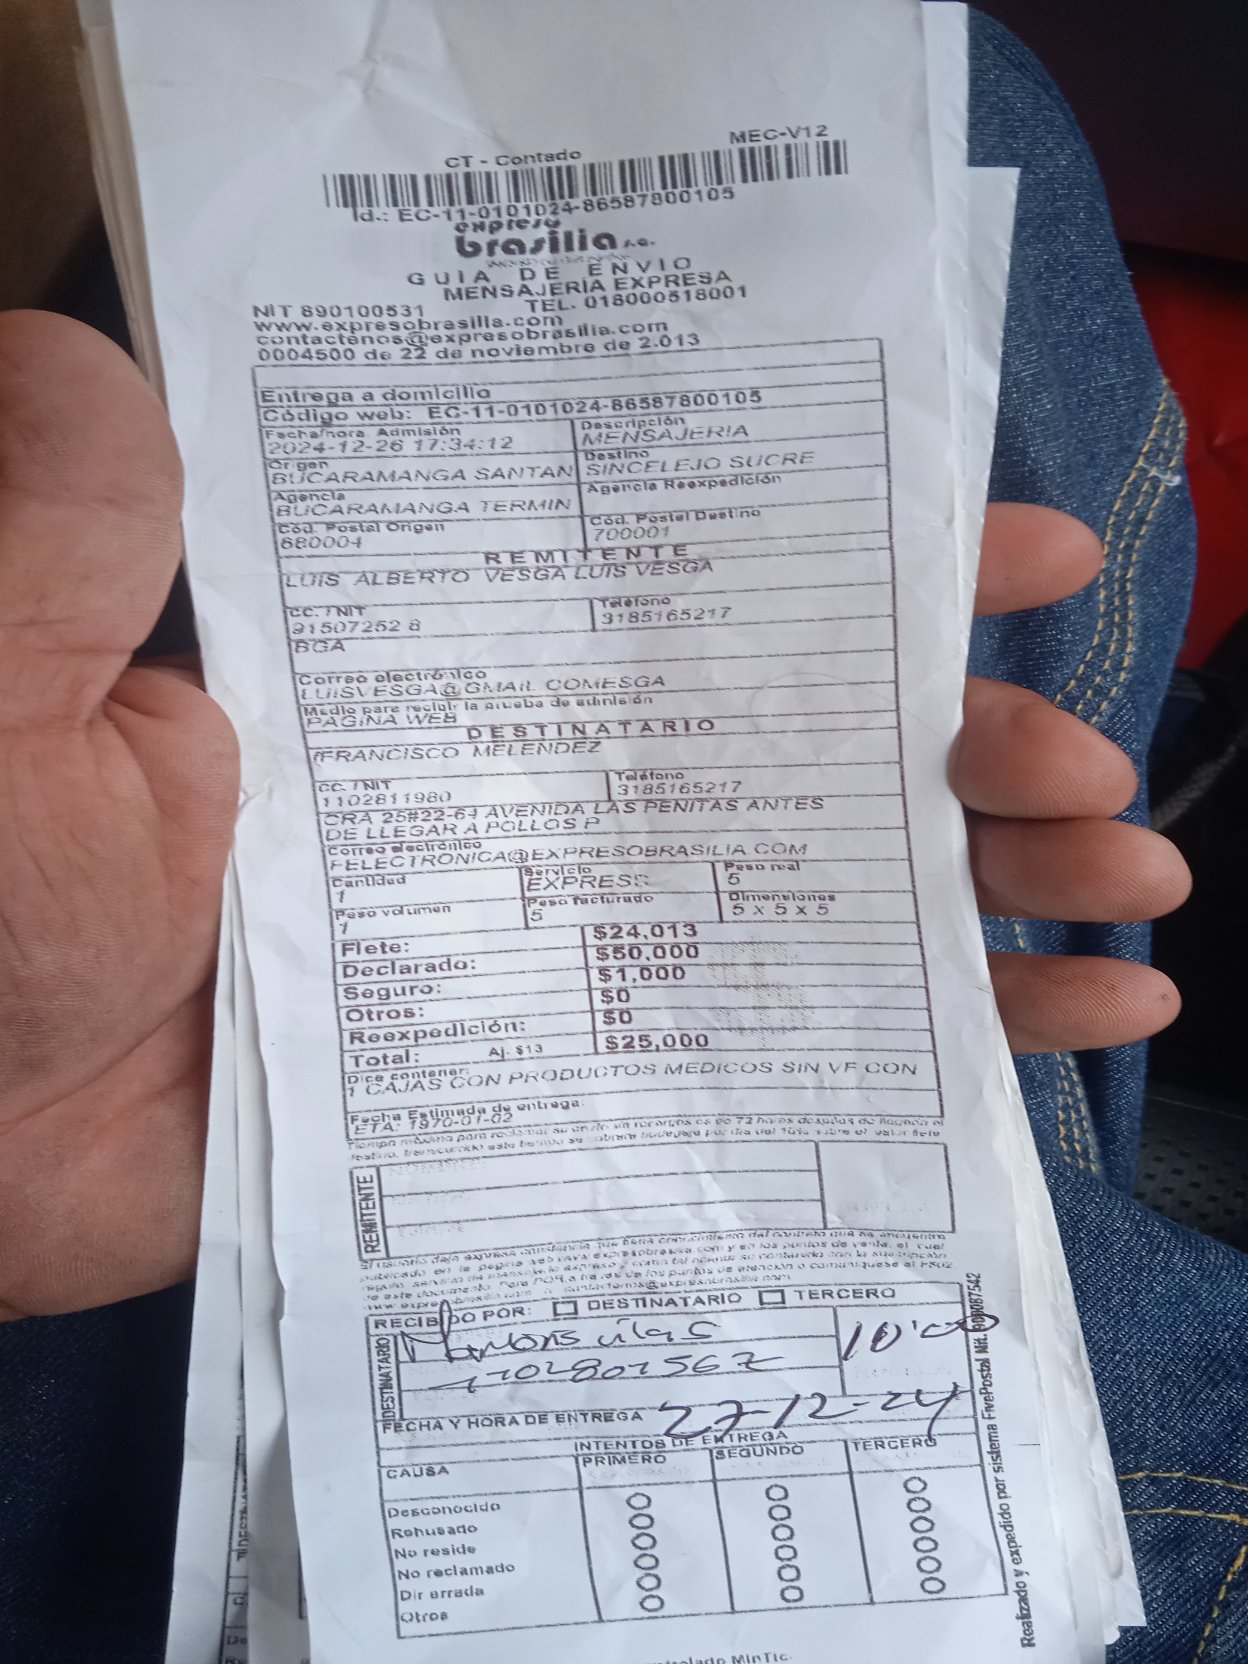 MEC-V12
CT - Contado
Id.: EC-11-0101024-86587800105
expreso
brasilia s.a.
GUIA DE ENVIO
MENSAJERÍA EXPRESA
NIT 890100531 TEL. 018000518001
www.expresobrasilia.com
contactenos@expresobrasilia.com
0004500 de 22 de noviembre de 2.013
Entrega a domicilio
Código web: EC-11-0101024-86587800105
Fecha/hora Admisión Descripción
2024-12-26 17:34:12 MENSAJERIA
Origen Destino
BUCARAMANGA SANTAN SINCELEJO SUCRE
Agencia Agencia Reexpedición
BUCARAMANGA TERMIN
Cód. Postal Origen Cód. Postal Destino
680004 700001
REMITENTE
LUIS ALBERTO VESGA LUIS VESGA
CC. / NIT Teléfono
91507252 8 3185165217
BGA
Correo electrónico
LUISVESGA@GMAIL COMESGA
Medio para recibir la prueba de admisión
PAGINA WEB
DESTINATARIO
fFRANCISCO MELENDEZ
CC. / NIT Teléfono
1102811980 3185165217
CRA 25#22-64 AVENIDA LAS PEÑITAS ANTES
DE LLEGAR A POLLOS P
Correo electrónico
FELECTRONICA@EXPRESOBRASILIA COM
Cantidad Servicio Peso real
1 EXPRESS 5
Peso volumen Peso facturado Dimensiones
1 5 5 x 5 x 5
Flete: $24,013
Declarado: $50,000
Seguro: $1,000
Otros: $0
Reexpedición: $0
Total: Aj. $13 $25,000
Dice contener:
1 CAJAS CON PRODUCTOS MEDICOS SIN VF CON
Fecha Estimada de entrega:
ETA: 1970-01-02
REMITENTE
RECIBIDO POR: DESTINATARIO TERCERO
DESTINATARIO
1102801567 10:00
FECHA Y HORA DE ENTREGA 27-12-24
INTENTOS DE ENTREGA
CAUSA PRIMERO SEGUNDO TERCERO
Desconocido
Rehusado
No reside
No reclamado
Dir errada
Otros
Realizado y expedido por sistema FivePostal Nit. 900087542
MinTic.